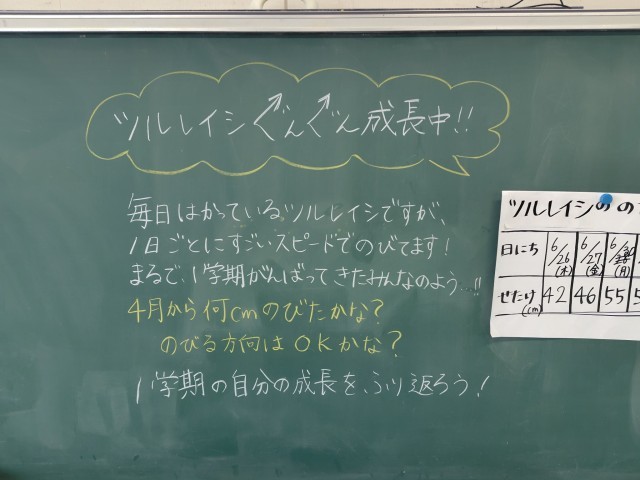 ツルレイシぐんぐん成長中!!
毎日はかっているツルレイシですが、
1日ごとにすごいスピードでのびてます!
まるで、1学期がんばってきたみんなのよう…!!
4月から何cmのびたかな?
のびる方向はOKかな?
1学期の自分の成長を、ふり返ろう!
ツルレイシの の
日にち 6/26(木) 6/27(金) 6/30(月)
せたけ(cm) 42 46 55 5